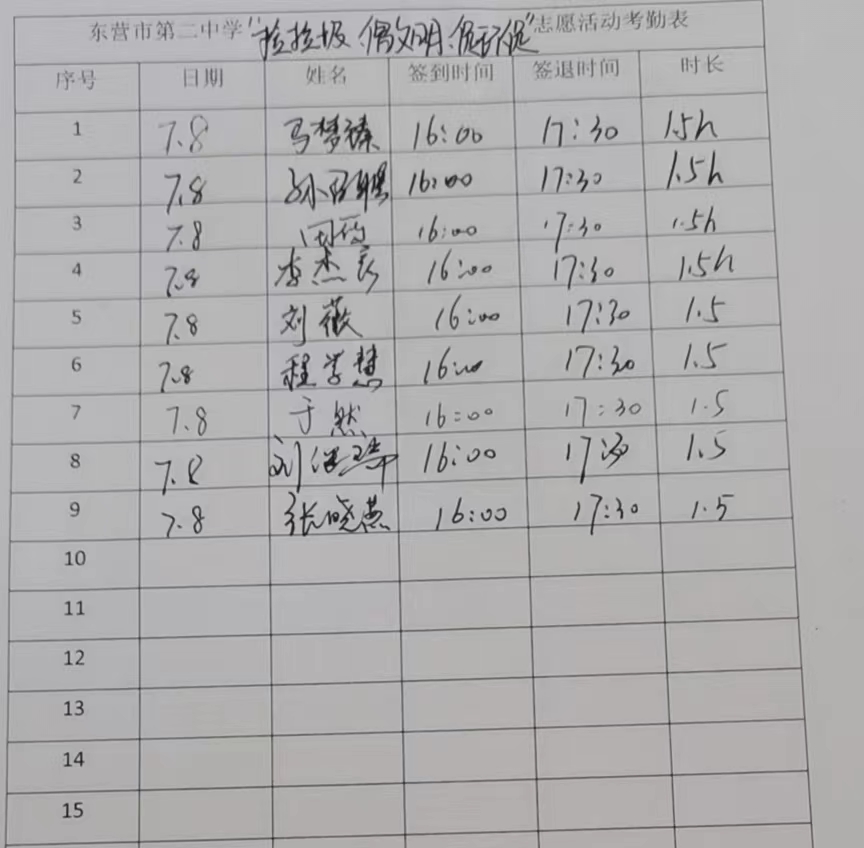 东营市第二中学“捡垃圾、倡文明、促环保”志愿活动考勤表
序号 日期 姓名 签到时间 签退时间 时长
1 7.8 马梦臻 16:00 17:30 1.5h
2 7.8 孙 16:00 17:30 1.5h
3 7.8 16:00 17:30 1.5h
4 7.8 李杰 16:00 17:30 1.5h
5 7.8 刘薇 16:00 17:30 1.5
6 7.8 程学慧 16:00 17:30 1.5
7 7.8 于然 16:00 17:30 1.5
8 7.8 刘 16:00 17:30 1.5
9 7.8 张晓燕 16:00 17:30 1.5
10
11
12
13
14
15